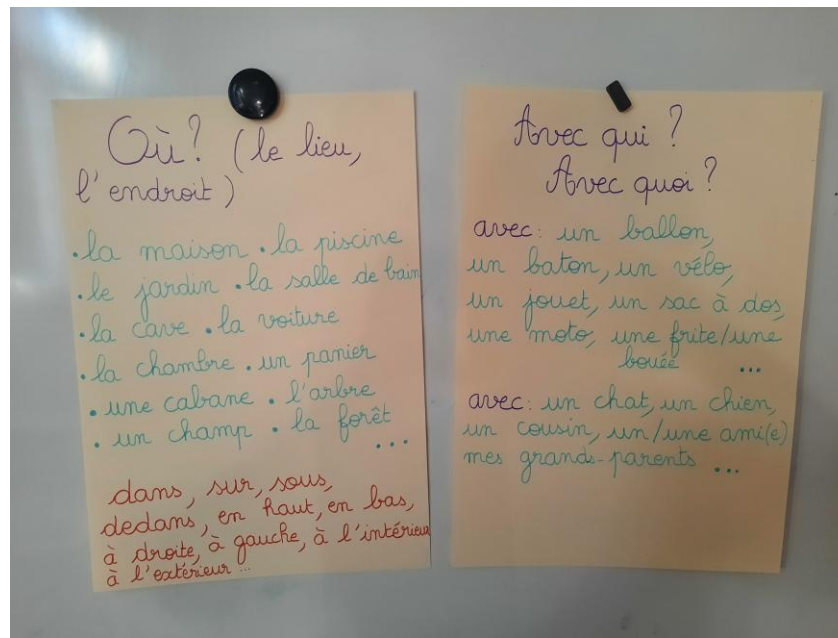 Où? (le lieu,
l'endroit)
• la maison • la piscine
• le jardin • la salle de bain
• la cave • la voiture
• la chambre • un panier
• une cabane • l'arbre
• un champ • la forêt
...
dans, sur, sous,
dedans, en haut, en bas,
à droite, à gauche, à l'intérieur
à l'extérieur ...
Avec qui ?
Avec quoi ?
avec: un ballon,
un baton, un vélo,
un jouet, un sac à dos,
une moto, une frite/une
bouée ...
avec: un chat, un chien,
un cousin, un/une ami(e)
mes grands-parents ...